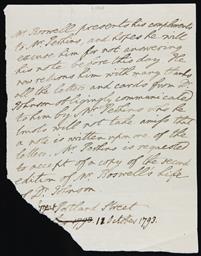 Mr. Boswell presents his compliments
to Mr. Perkins, and hopes he will
excuse him for not answering
his note before this day. He
now returns him with many thanks
all the letters and cards from Dr.
Johnson obligingly communicated
to him by Mr. Perkins who he
trusts will not take amiss that
a note is written upon one of the
letters. Mr. Perkins is requested
to accept of a copy of the second
edition of Mr. Boswell's Life
of Dr. Johnson.
Portland Street
12 October 1793.